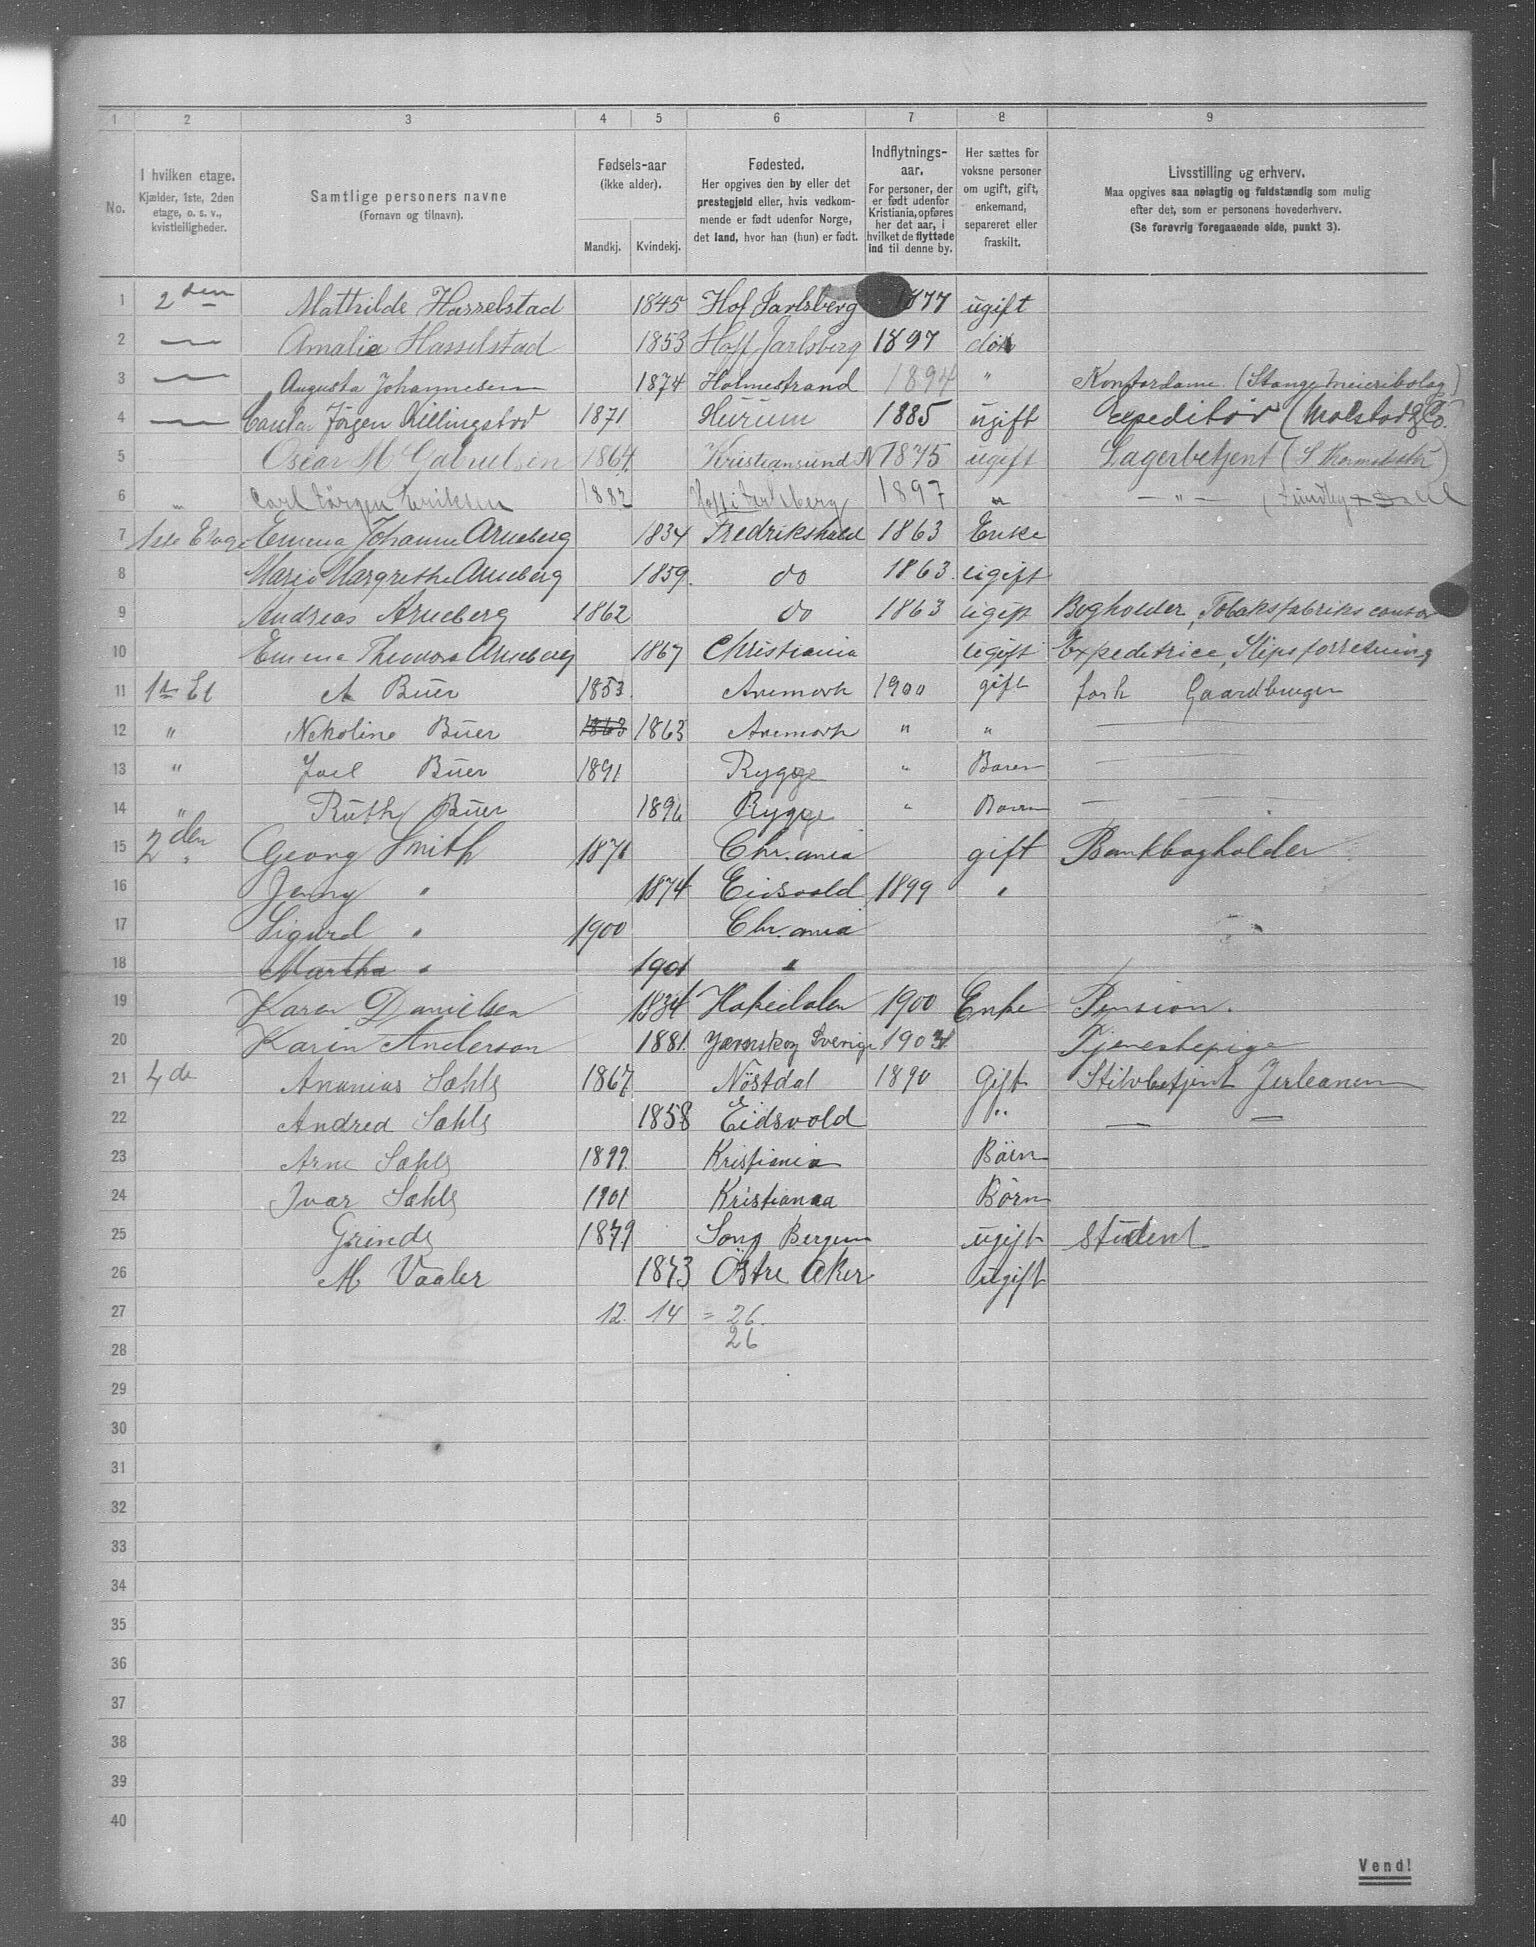 1 2 3 4 5 6 7 8 9
No. I hvilken etage. Kjælder, 1ste, 2den etage, o. s. v., kvistleiligheder. Samtlige personers navne (Fornavn og tilnavn). Fødsels-aar (ikke alder). Mandkj. Kvindekj. Fødested. Her opgives den by eller det prestegjeld eller, hvis vedkommende er født udenfor Norge, det land, hvor han (hun) er født. Indflytnings-aar. For personer, der er født udenfor Kristiania, opføres her det aar, i hvilket de flyttede ind til denne by. Her sættes for voksne personer om ugift, gift, enkemand, separeret eller fraskilt. Livsstilling og erhverv. Maa opgives saa nøiagtig og fuldstændig som mulig efter det, som er personens hovederhverv. (Se forøvrig foregaaende side, punkt 3).
1 2den Mathilde Hasselstad 1845 Hof Jarlsberg 1877 ugift
2 — Amalia Hasselstad 1853 Hoff Jarlsberg 1897 do
3 — Augusta Johannesen 1874 Holmestrand 1894 " Kontordame (Stange Meieribolag)
4 — Jørgen Killingstad 1871 Hurum 1885 ugift Expeditør (Molstad & Co.
5 Oscar M Gabrielsen 1864 Kristiansund N 1875 ugift Lagerbetjent (S
6 " Carl Jørgen Eriksen 1882 Hoff i Jarlsberg 1897 " — " — (Lundby
7 1ste Etage Emma Johanne Arneberg 1834 Fredrikshald 1863 Enke
8 Marie Margrethe Arneberg 1859. do 1863. ugift
9 Andreas Arneberg 1862 do 1863 ugift Bogholder, Tobaksfabriks contor
10 Emma Theodora Arneberg 1867 Christiania ugift Expeditrice, Slipsforretning
11 1st Et A Buer 1853. Aremark 1900 gift forh Gaardbruger
12 " Nekoline Buer 1863 1863 Aremark " "
13 " Joel Buer 1891 Rygge " Baren
14 " Ruth Buer 1896 Rygge " Baren
15 2den " Georg Smith 1871 Chr.ania gift Bankbogholder
16 Jenny " 1874 Eidsvold 1899 "
17 Sigurd " 1900 Chr.ania
18 Martha " 1901 "
19 Karen Danielsen 1834 Hakedalen 1900 Enke Pension.
20 Karin Anderson 1881. Jærnskog Sverige 1901 Tjenestepige
21 4de Ananias Sæhle 1867 Nöstdal 1890 Gift
22 Andrea Sæhle 1858 Eidsvold " — —
23 Arne Sæhle 1899. Kristiania Börn
24 Ivar Sæhle 1901 Kristiania Börn
25 Grinde 1879 Bergen ugift Student
26 M Vaaler 1873 Östre Aker ugift
27 12. 14 = 26.
28 26
29
30
31
32
33
34
35
36
37
38
39
40
Vend!